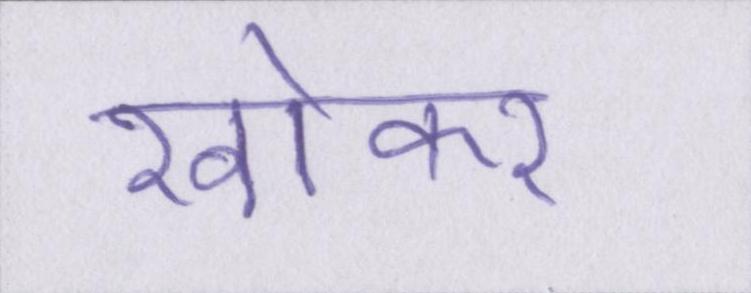 खोकर